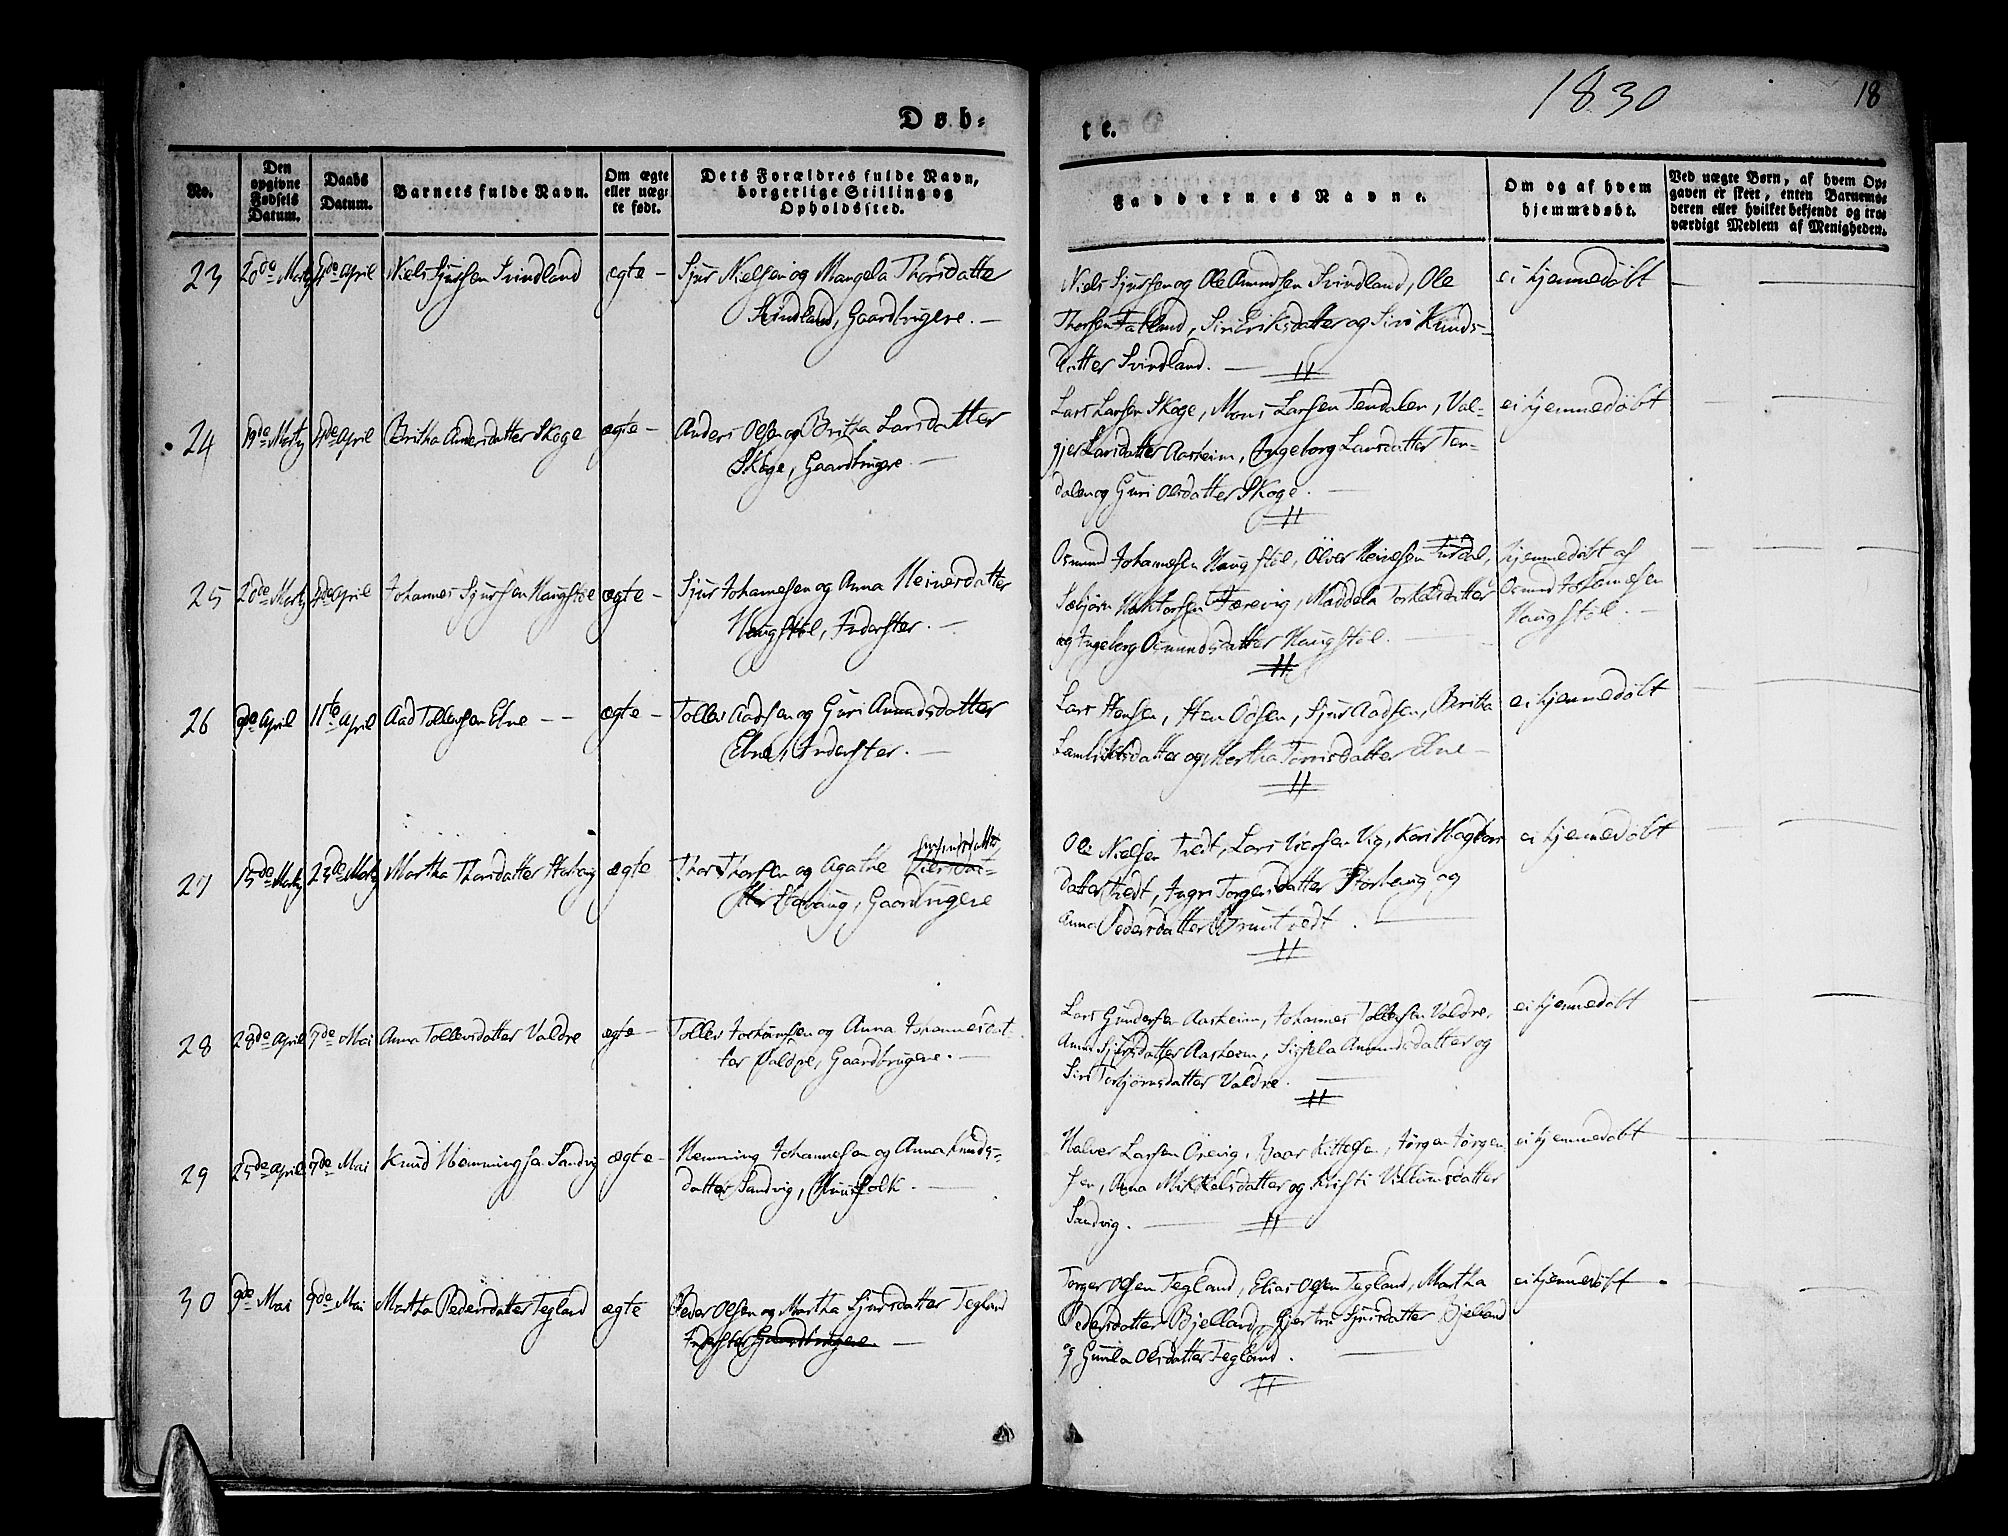 1830
18
Døb-
te.
No.
Den opgivne Fødsels Datum.
Daabs Datum.
Barnets fulde Navn.
Om ægte eller uægte født.
Dets Forældres fulde Navn, borgerlige Stilling og Opholdssted.
Faddernes Navne.
Om og af hvem hjemmedøbt.
Ved uægte Børn, af hvem Opgaven er skeet, enten Barnemoderen eller hvilket bekjendt og troværdigt Medlem af Menigheden.
23 20de Martz 4de April Niels Sjursen Svindland ægte - Sjur Nielsen og Mangela Thorsdatter
Svindland, Gaardbrugere. -
Niels Sjursen og Ole Amundsen Svindland, Ole
Thorsen Fatland, Siri Eriksdatter og Siri Knuds-
datter Svindland. -
ei hjemmedøbt
24 19de Martz 4de April Britha Andersdatter Skoge ægte - Anders Olsen og Britha Larsdatter
Skoge, Gaardbrugere. -
Lars Larsen Skoge, Mons Larsen Tendalen, Val-
gjer Larsdatter Aasheim, Ingeborg Larsdatter Ten-
dalen og Guri Olsdatter Skoge. -
ei hjemmedøbt
25 20de Martz 4de April Johannes Sjursen Haugstøl ægte - Sjur Johannesen og Anna Heinesdatter
Haugstøl, Inderster. -
Osmund Johannesen Haugstøl, Ölver Heinesen
Sæbjørn Færevig, Maddela Torkelsdatter
og Ingeborg Osmundsdatter Haugstøl. -
hjemmedøbt af
Osmund Johannesen
Haugstøl. -
26 9de April 11te April Aad Tollevsen Etne - - ægte - Tollev Aadsen og Guri Amundsdatter
Etne, Inderster. -
Lars Stensen, Sten Odsen, Sjur Aadsen, Britha
og Martha Torrisdatter Etne -
ei hjemmedøbt
27 15de Martz 23de Martz Martha Thorsdatter Støbaug ægte Thor Thorsen og Agathe
Støbaug, Gaardbrugere
Ole Nielsen Tvedt, Lars Iversen Vig, Kari
datter Tvedt, Ingri Torgersdatter og
Anna Pedersdatter
ei hjemmedøbt
28 28de April 7de Mai Anna Tollevsdatter Valdre ægte - Tollev og Anna Johannesdat-
ter Valdre, Gaardbrugere. -
Lars Gundersen Aasheim, Johannes Tollefsen Valdre,
Anna Sjursdatter Aasheim, Sissela Amundsdatter og
Siri Torbjørnsdatter Valdre. -
ei hjemmedøbt
29 25de April 7de Mai Knud Hemmingsen Sandvig ægte - Hemming Johannesen og Anna Knuds-
datter Sandvig, Huusfolk. -
Halver Larsen Opevig, Baar Kittelsen, Jørgen Jørgen-
sen, Anna Mikkelsdatter og Kristi Villumsdatter
Sandvig. -
ei hjemmedøbt
30 9de Mai 9de Mai Martha Pedersdatter Tegland ægte Peder Olsen og Martha Sjursdatter Tegland
Inderster Gaardbrugere. -
Torger Olsen Tegland, Elias Olsen Tegland, Martha
Pedersdatter Bjelland, Gjertru Sjursdatter Bjelland
og Gunla Olsdatter Tegland. -
ei hjemmedøbt